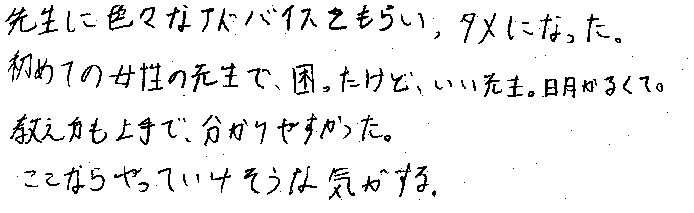 先生に色々なアドバイスをもらい、タメになった。
初めての女性の先生で、困ったけど、いい先生。明がるくて。
教え方も上手で、分かりやすかった。
ここならやっていけそうな気がする。